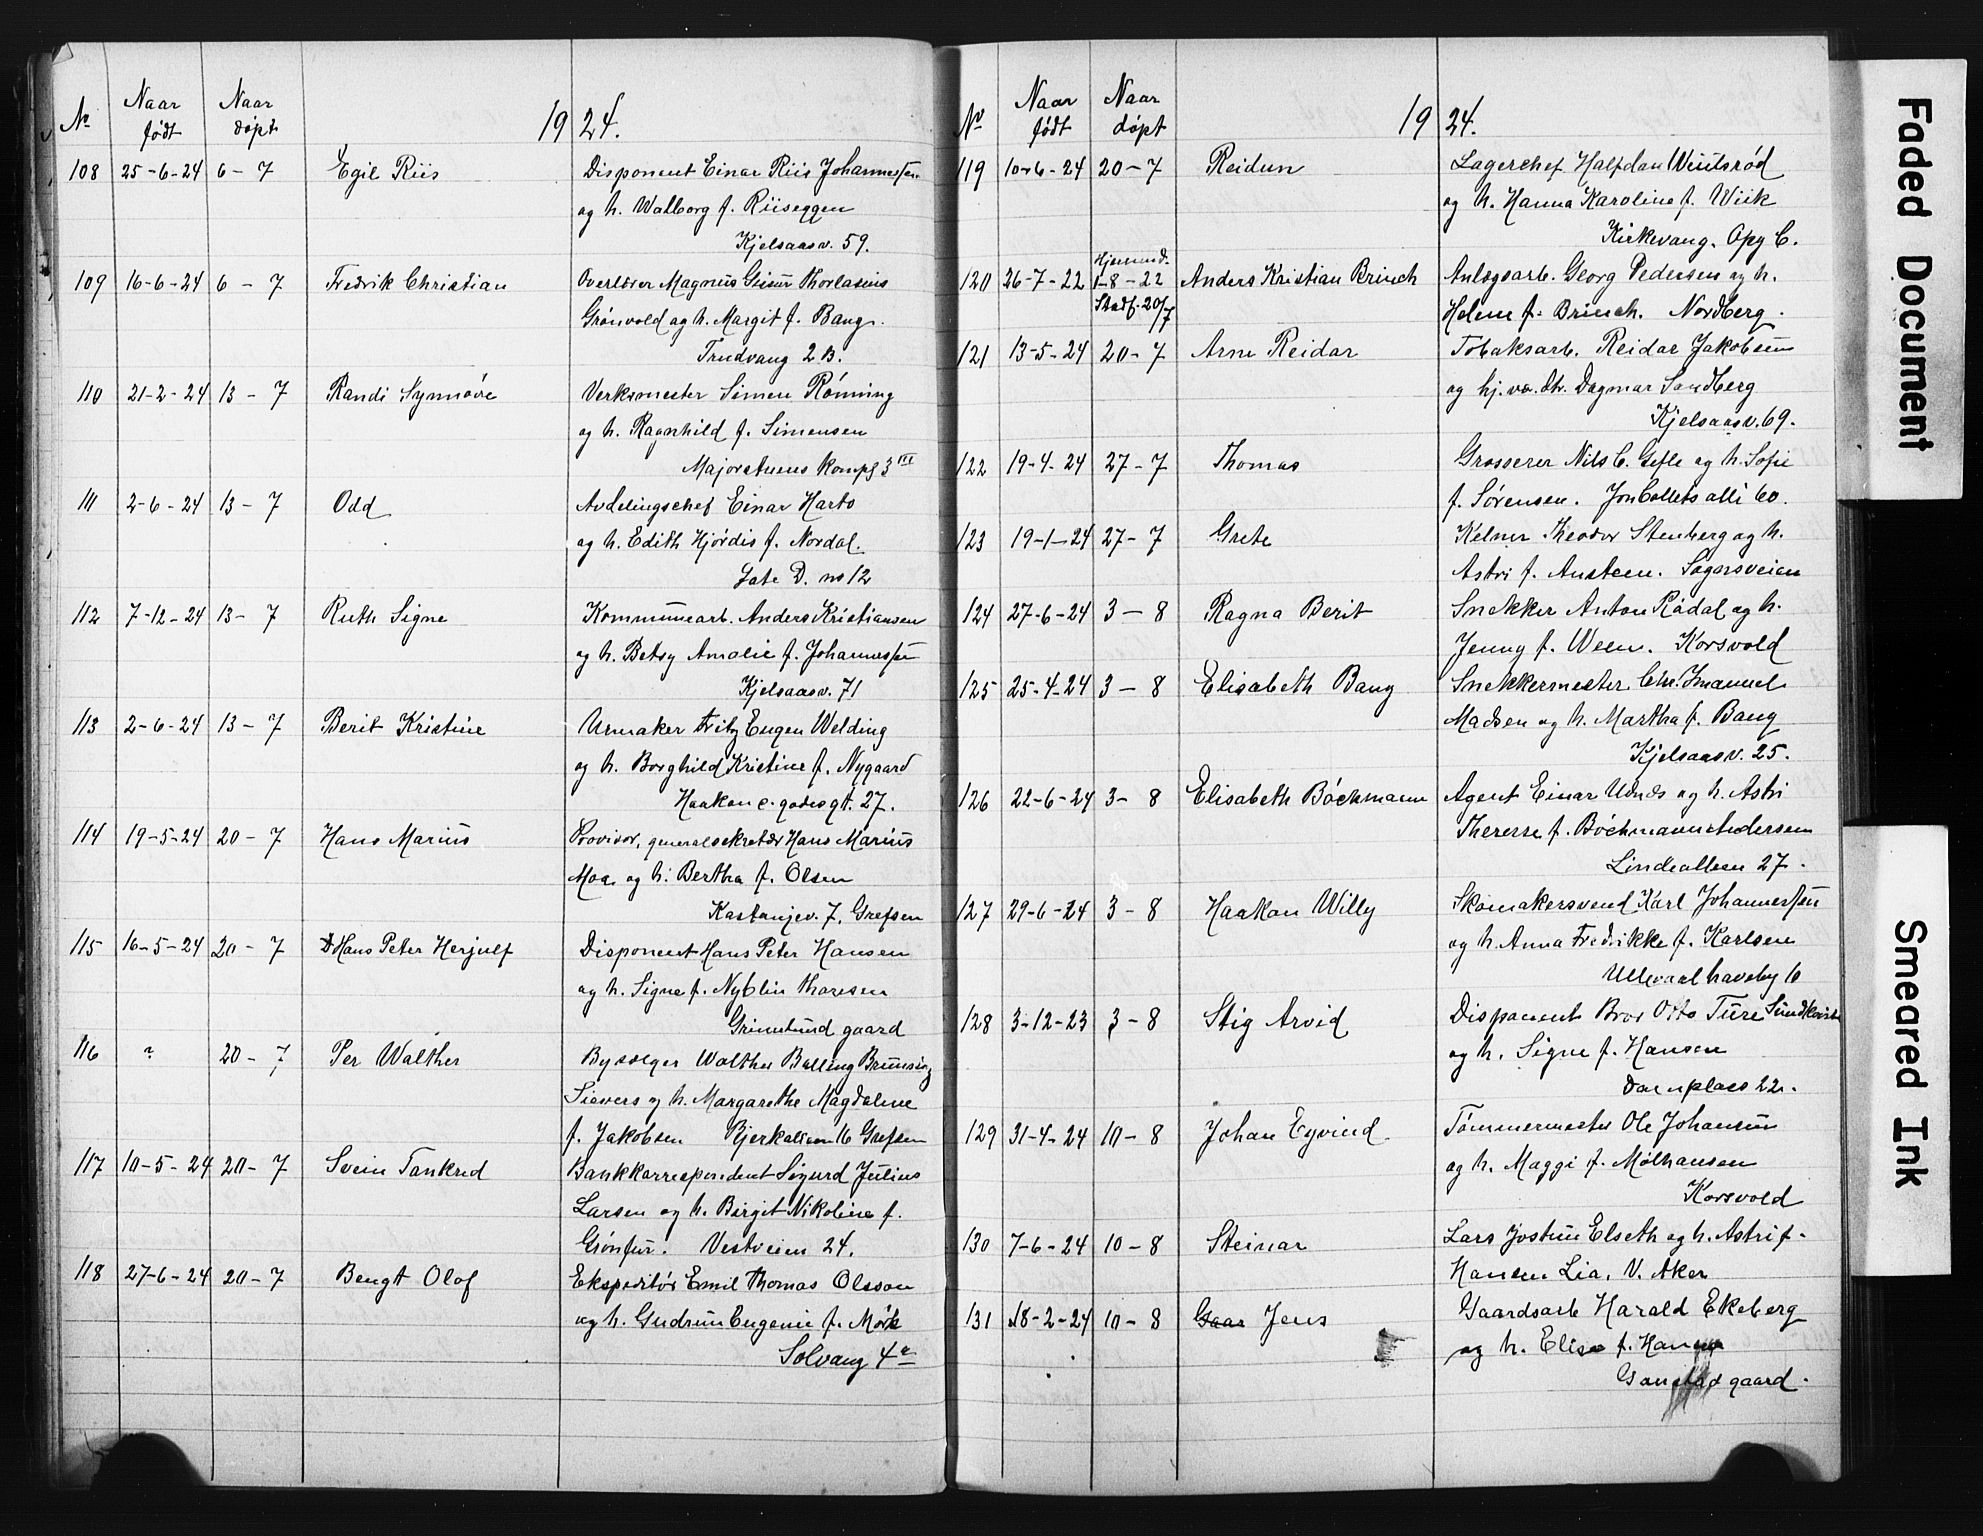 No Naar født Naar døpt 1924.
108 25-6-24 6-7 Egil Riis Disponent Einar Riis Johannessen
og h. Walborg f. Riiseggen
Kjelsaasv. 59.
109 16-6-24 6-7 Fredrik Christian Overlærer Magnus Thorlasius
Grønvold og h. Margit f. Bang.
Trudvang 2 B.
110 21-2-24 13-7 Randi Synnøve Verksmester Simen Rønning
og h. Ragnhild f. Simensen
Majorstuens kompl 3 III
111 2-6-24 13-7 Odd Avdelingschef Einar Harto
og h. Edith Hjørdis f. Nordal.
Gate D. no 12
112 7-12-24 13-7 Ruth Signe Kommunearb. Anders Kristiansen
og h. Betsy Amalie f. Johannessen
Kjelsaasv. 71
113 2-6-24 13-7 Berit Kristine Urmaker Fritz Eugen Welding
og h. Borghild Kristine f. Nygaard
Haakon e. godes gt. 27.
114 19-5-24 20-7 Hans Marius Provisor, generalsekretær Hans Marius
Moa og h. Bertha f. Olsen
Kastanjev. 7, Grefsen
115 16-5-24 20-7 Hans Peter Herjulf Disponent Hans Peter Hansen
og h. Signe f. Nyblin Thoresen
Grimelund gaard
116 ? 20-7 Per Walther Bysselger Walther Balling Brunsvig
Sievers og h. Margarethe Magdalene
f. Jakobsen Bjerkealleen 16 Grefsen
117 10-5-24 20-7 Svein Tankred Bankkorrespondent Sigurd Julius
Larsen og h. Birgit Nikoline f.
Grønfur. Vestveien 24.
118 27-6-24 20-7 Bengt Olof Ekspeditør Emil Thomas Olsson
og h. Gudrun Eugenie f. Mørk
Solvang 4a
No Naar født Naar døpt 1924.
119 10-6-24 20-7 Reidun Lagerchef Halfdan
og h. Hanna Karoline f. Wiik
Kirkevang. Opg C.
120 26-7-22 Hjemmed. 1-8-22 Stadf. 20/7 Anders Kristian Brinch Anlegsarb. Georg Pedersen og h.
Helene f. Brinch. Nordberg.
121 13-5-24 20-7 Arne Reidar Tobaksarb. Reidar Jakobsen
og hj.vær. dtr. Dagmar Sandberg
Kjelsaasv. 69.
122 19-4-24 27-7 Thomas Grosserer Nils C. Gefle og h. Sofie
f. Sørensen. Jon Collets allé 60.
123 19-1-24 27-7 Grete Kelner Theodor Stenberg og h.
Astri f. Austeen. Sogersveien
124 27-6-24 3-8 Ragna Berit Snekker Anton Rådal og h.
Jenny f. Ween. Korsvold
125 25-4-24 3-8 Elisabeth Bang Snekkermester Chr. Imanuel
Madsen og h. Martha f. Bang
Kjelsaasv. 25.
126 22-6-24 3-8 Elisabeth Bøchmann Agent Einar Udnæs og h. Astri
Therese f. Bøchmann Andersen
Lindealleen 27.
127 29-6-24 3-8 Haakon Willy Skomakersvend Karl Johannessen
og h. Anna Fredrikke f. Karlsen
Ullevaal haveby 10
128 3-12-23 3-8 Stig Arvid Disponent Bror Otto Ture Sundkvist
og h. Signe f. Hansen
Damplass 22.
129 31-4-24 10-8 Johan Eyvind Tømmermester Ole Johansen
og h. Maggi f. Mølhausen
Korsvold
130 7-6-24 10-8 Steinar Lars Jostein Elseth og h. Astri f.
Hansen Lia, V. Aker
131 18-2-24 10-8 Gaar Jens Gaardsarb Harald Ekeberg
og h. Elise f. Hansen
gaard.
Faded Document
Smeared Ink